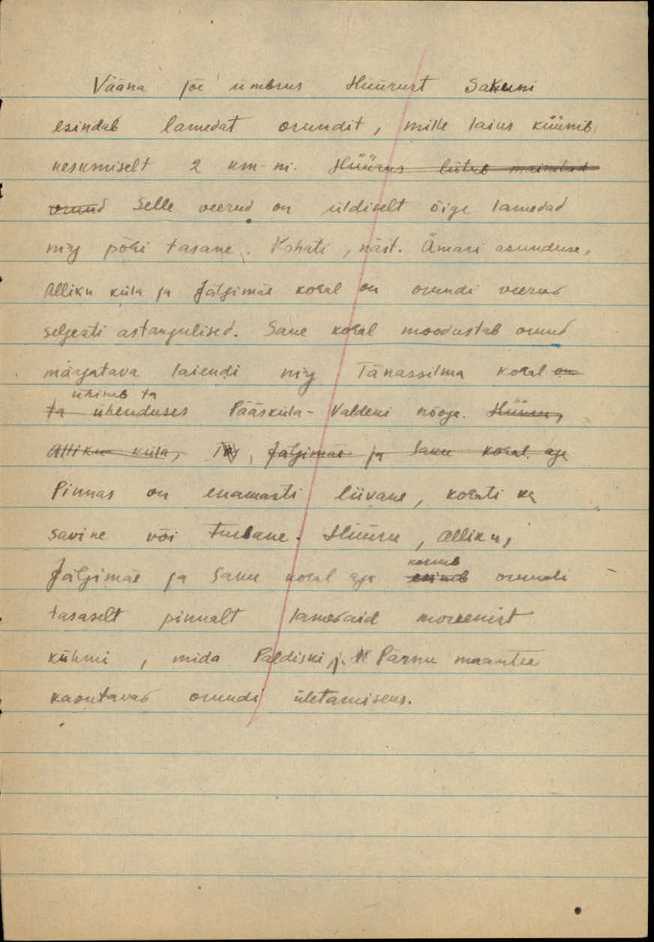 Vääna jõe ümbrus Hüürust Sakuni
esindab lamedat orundit, mille laius küünib
keskmiselt 2 km-ni. Hüürus liitub
orund Selle veerud on üldiselt õige lamedad
ning põhi tasane. Kohati, näit. Ämari asunduse,
Alliku küla ja Jälgimäe kohal on orundi veerud
selgesti astangulised. Saue kohal moodustab orund
märgatava laiendi ning Tänassilma kohal on
ühineb ta
ta ühenduses Pääsküla- Valdeku nõoga. Hüüru,
Alliku küla, Jälgimäe ja Saku kohal aga
Pinnas on enamasti liivane, kohati ka
savine või turbane. Hüüru, Alliku,
kerkib
Jälgimäe ja Saku kohal aga esineb orundi
tasaselt pinnalt lamedaid moreenist
kühmi, mida Paldiski j. Pärnu maantee
kasutavad orundi ületamiseks.